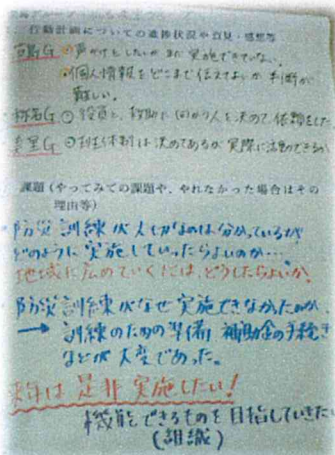 行動計画についての進捗状況や意見・感想等
声かけをしたいがまだ実施できていない。
個人情報をどこまで伝えてよいか判断が
難しい。
役員と、移動に
班体制は決めてあるが実際に活動できるか
課題（やってみての課題や、やれなかった場合はその
理由等）
防災訓練が大切なのは分かっているが
どのように実施していったらよいのか…
地域に広めていくには、どうしたらよいか。
防災訓練がなぜ実施できなかったのか、
→ 訓練のための準備 補助金の手続き
などが大変であった。
来年は是非実施したい！
機能できるものを目指していきたい
（組織）